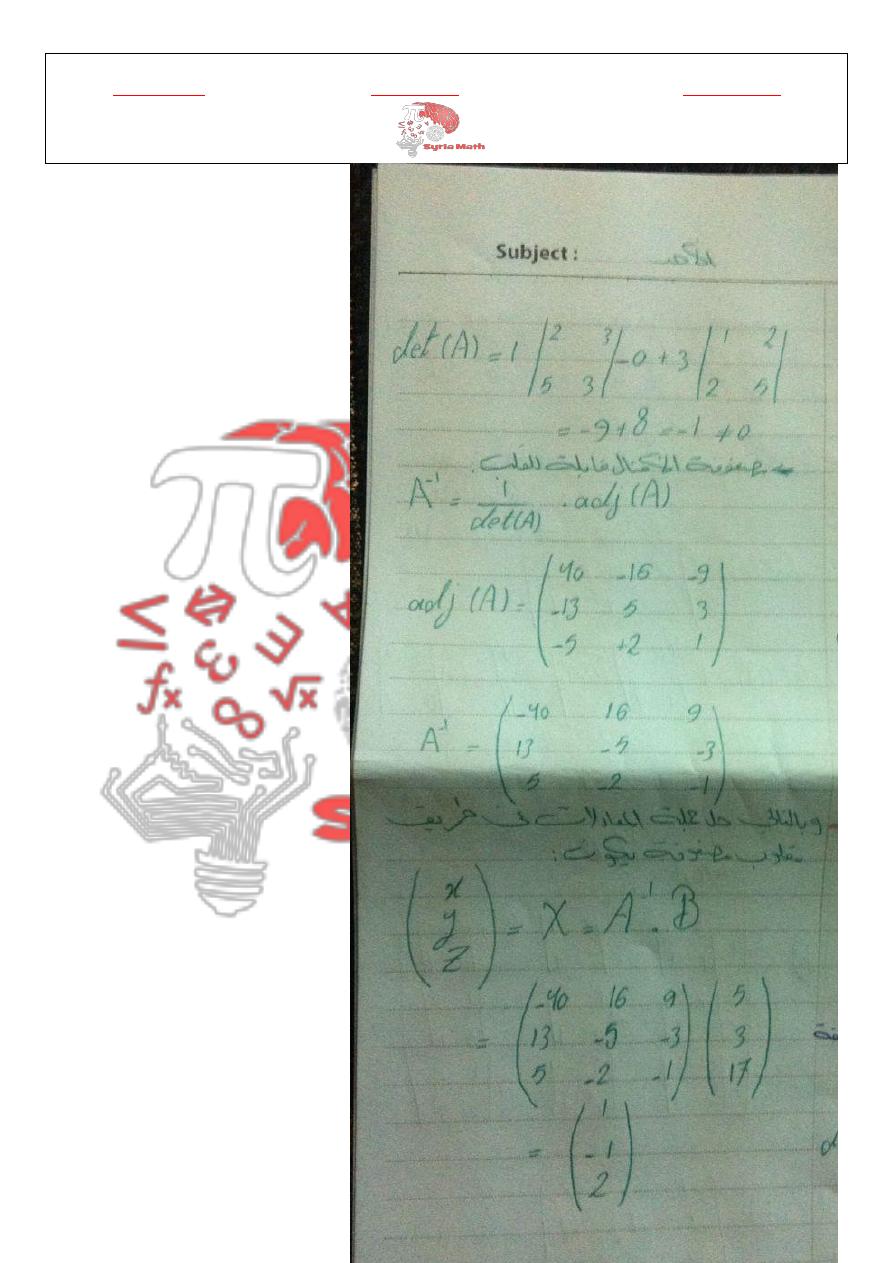 Syria Math
Subject :
det(A) = 1 |2 3| - 0 + 3 |1 2|
|5 3| |2 5|
= -9 + 8 = -1 ≠ 0
قابلة للقلب
A⁻¹ = 1/det(A) . adj (A)
adj (A) = (40 -16 -9
-13 5 3
-5 +2 1)
A⁻¹ = (-40 16 9
13 -5 -3
5 -2 -1)
وبالتالي حل جملة المعادلات
مقلوب مصفوفة يكون :
(x
y
z) = X = A⁻¹ . B
= (-40 16 9
13 -5 -3
5 -2 -1) (5
3
17)
= (1
-1
2)